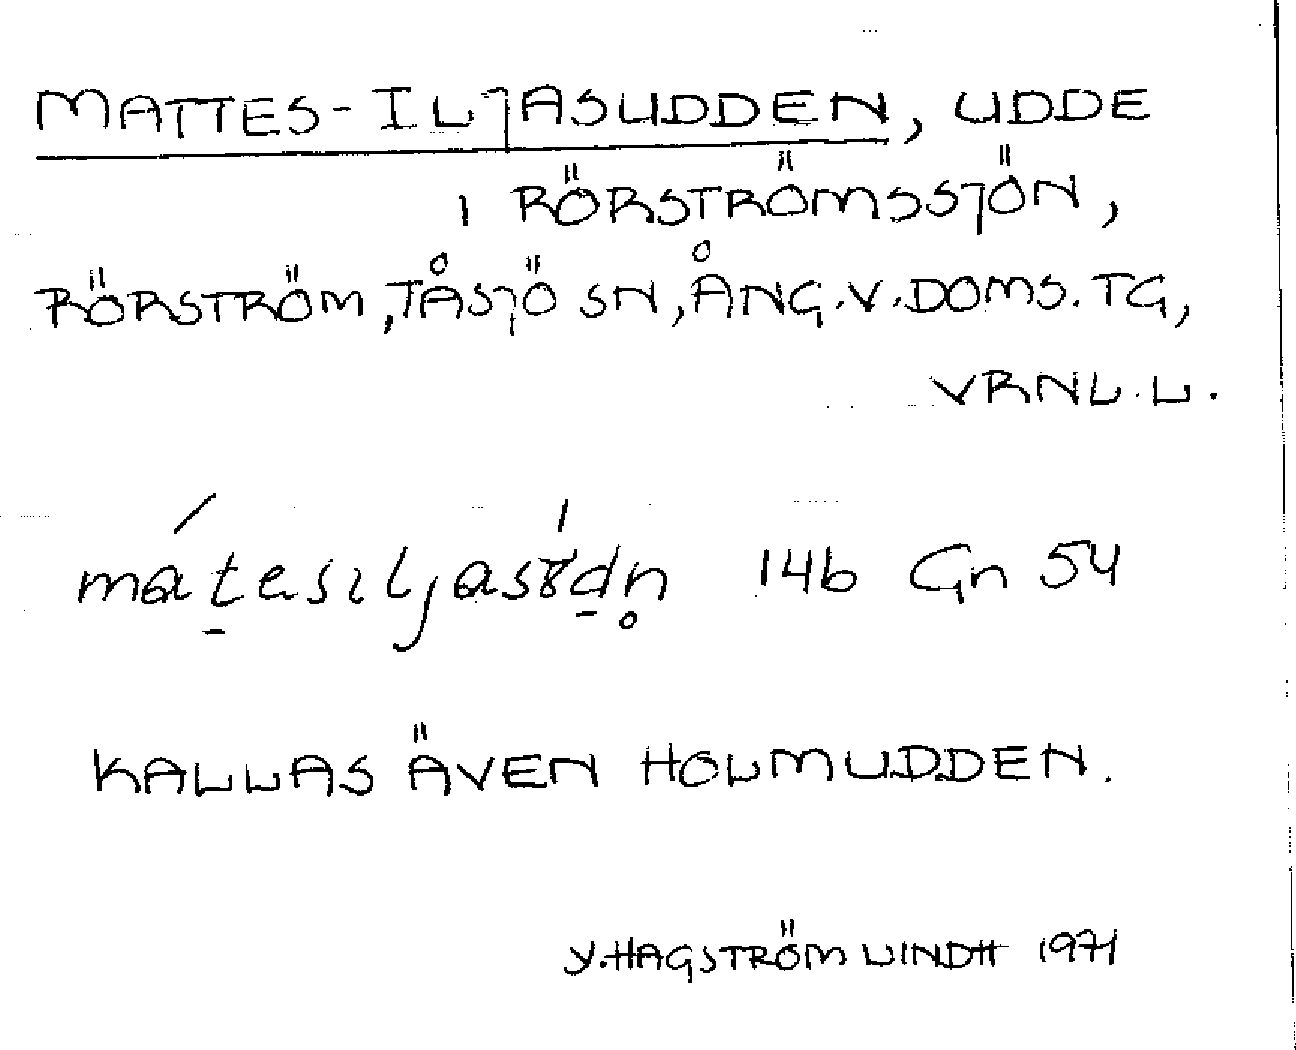 MATTES-ILJASUDDEN, UDDE
I RÖRSTRÖMSSJÖN,
RÖRSTRÖM, TÅSJÖ SN, ÅNG.V.DOMS.TG,
VRNL.L.
14b Gn 54
KALLAS ÄVEN HOLMUDDEN.
Y.HAGSTRÖM LINDH 1971